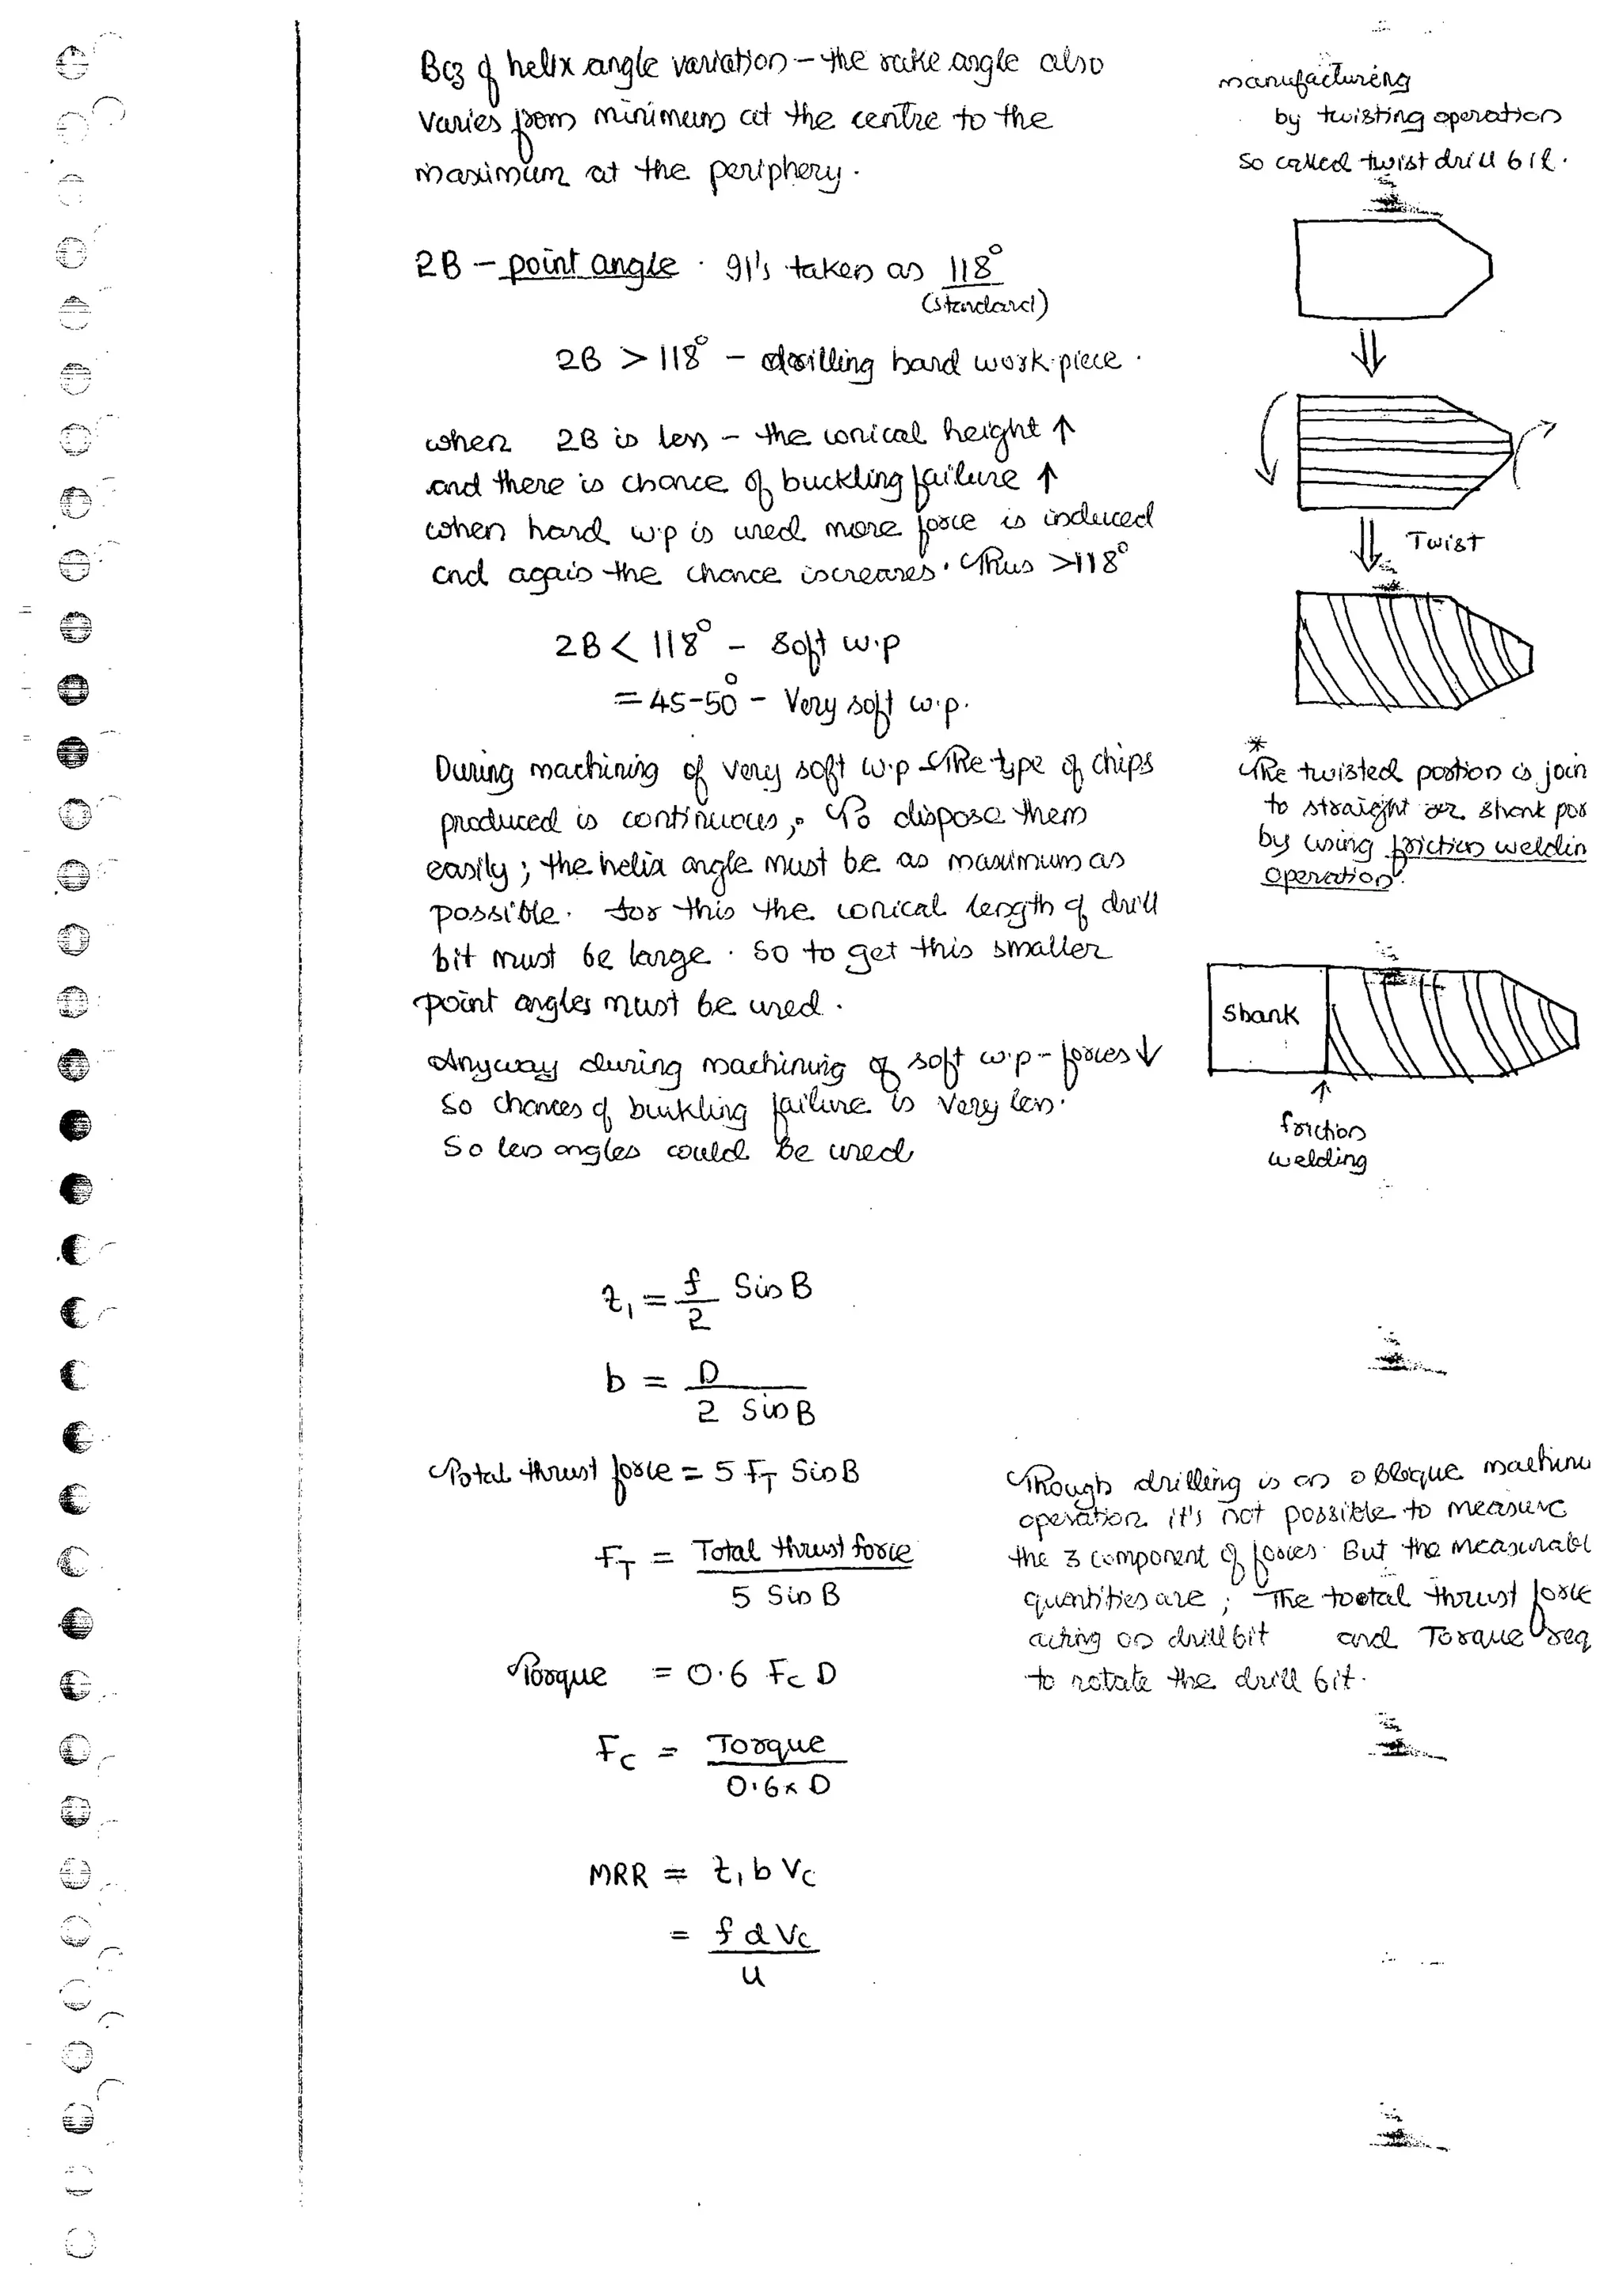 Bcz of helix angle variation – the rake angle also
varies from minimum at the centre to the
maximum at the periphery.
2B – point angle. It's taken as 118°
(standard)
2B > 118° – drilling hard work piece.
when 2B is less – the conical height ↑
and there is chance of buckling failure ↑
when hard w.p is used more force is induced
and again the chance increases. Thus >118°
2B < 118° – Soft w.p
= 45-50° – Very soft w.p.
During machining of very soft w.p – The type of chips
produced is continuous, To dispose them
easily; the helix angle must be as maximum as
possible. for this the conical length of drill
bit must be large. So to get this smaller
point angles must be used.
Anyway during machining of soft w.p – forces ↓
So chances of buckling failure is very less.
So less angles could be used
t₁ = f/2 Sin B
b = D / 2 Sin B
Total thrust force = 5 F_T Sin B
F_T = Total thrust force / 5 Sin B
Torque = 0.6 F_C D
F_C = Torque / 0.6 × D
MRR = t₁ b V_C
= f d V_C / 4
manufacturing
by twisting operation
so called twist drill bit.
Twist
* The twisted portion is join
to straight or shank por
by using friction weldin
operation.
Shank
↑
friction
welding
Though drilling is an oblique machine
operation it's not possible to measure
the 3 component of forces. But the measurabl
quantities are; The tootal thrust force
acting on drill bit and Torque req
to rotate the drill bit.